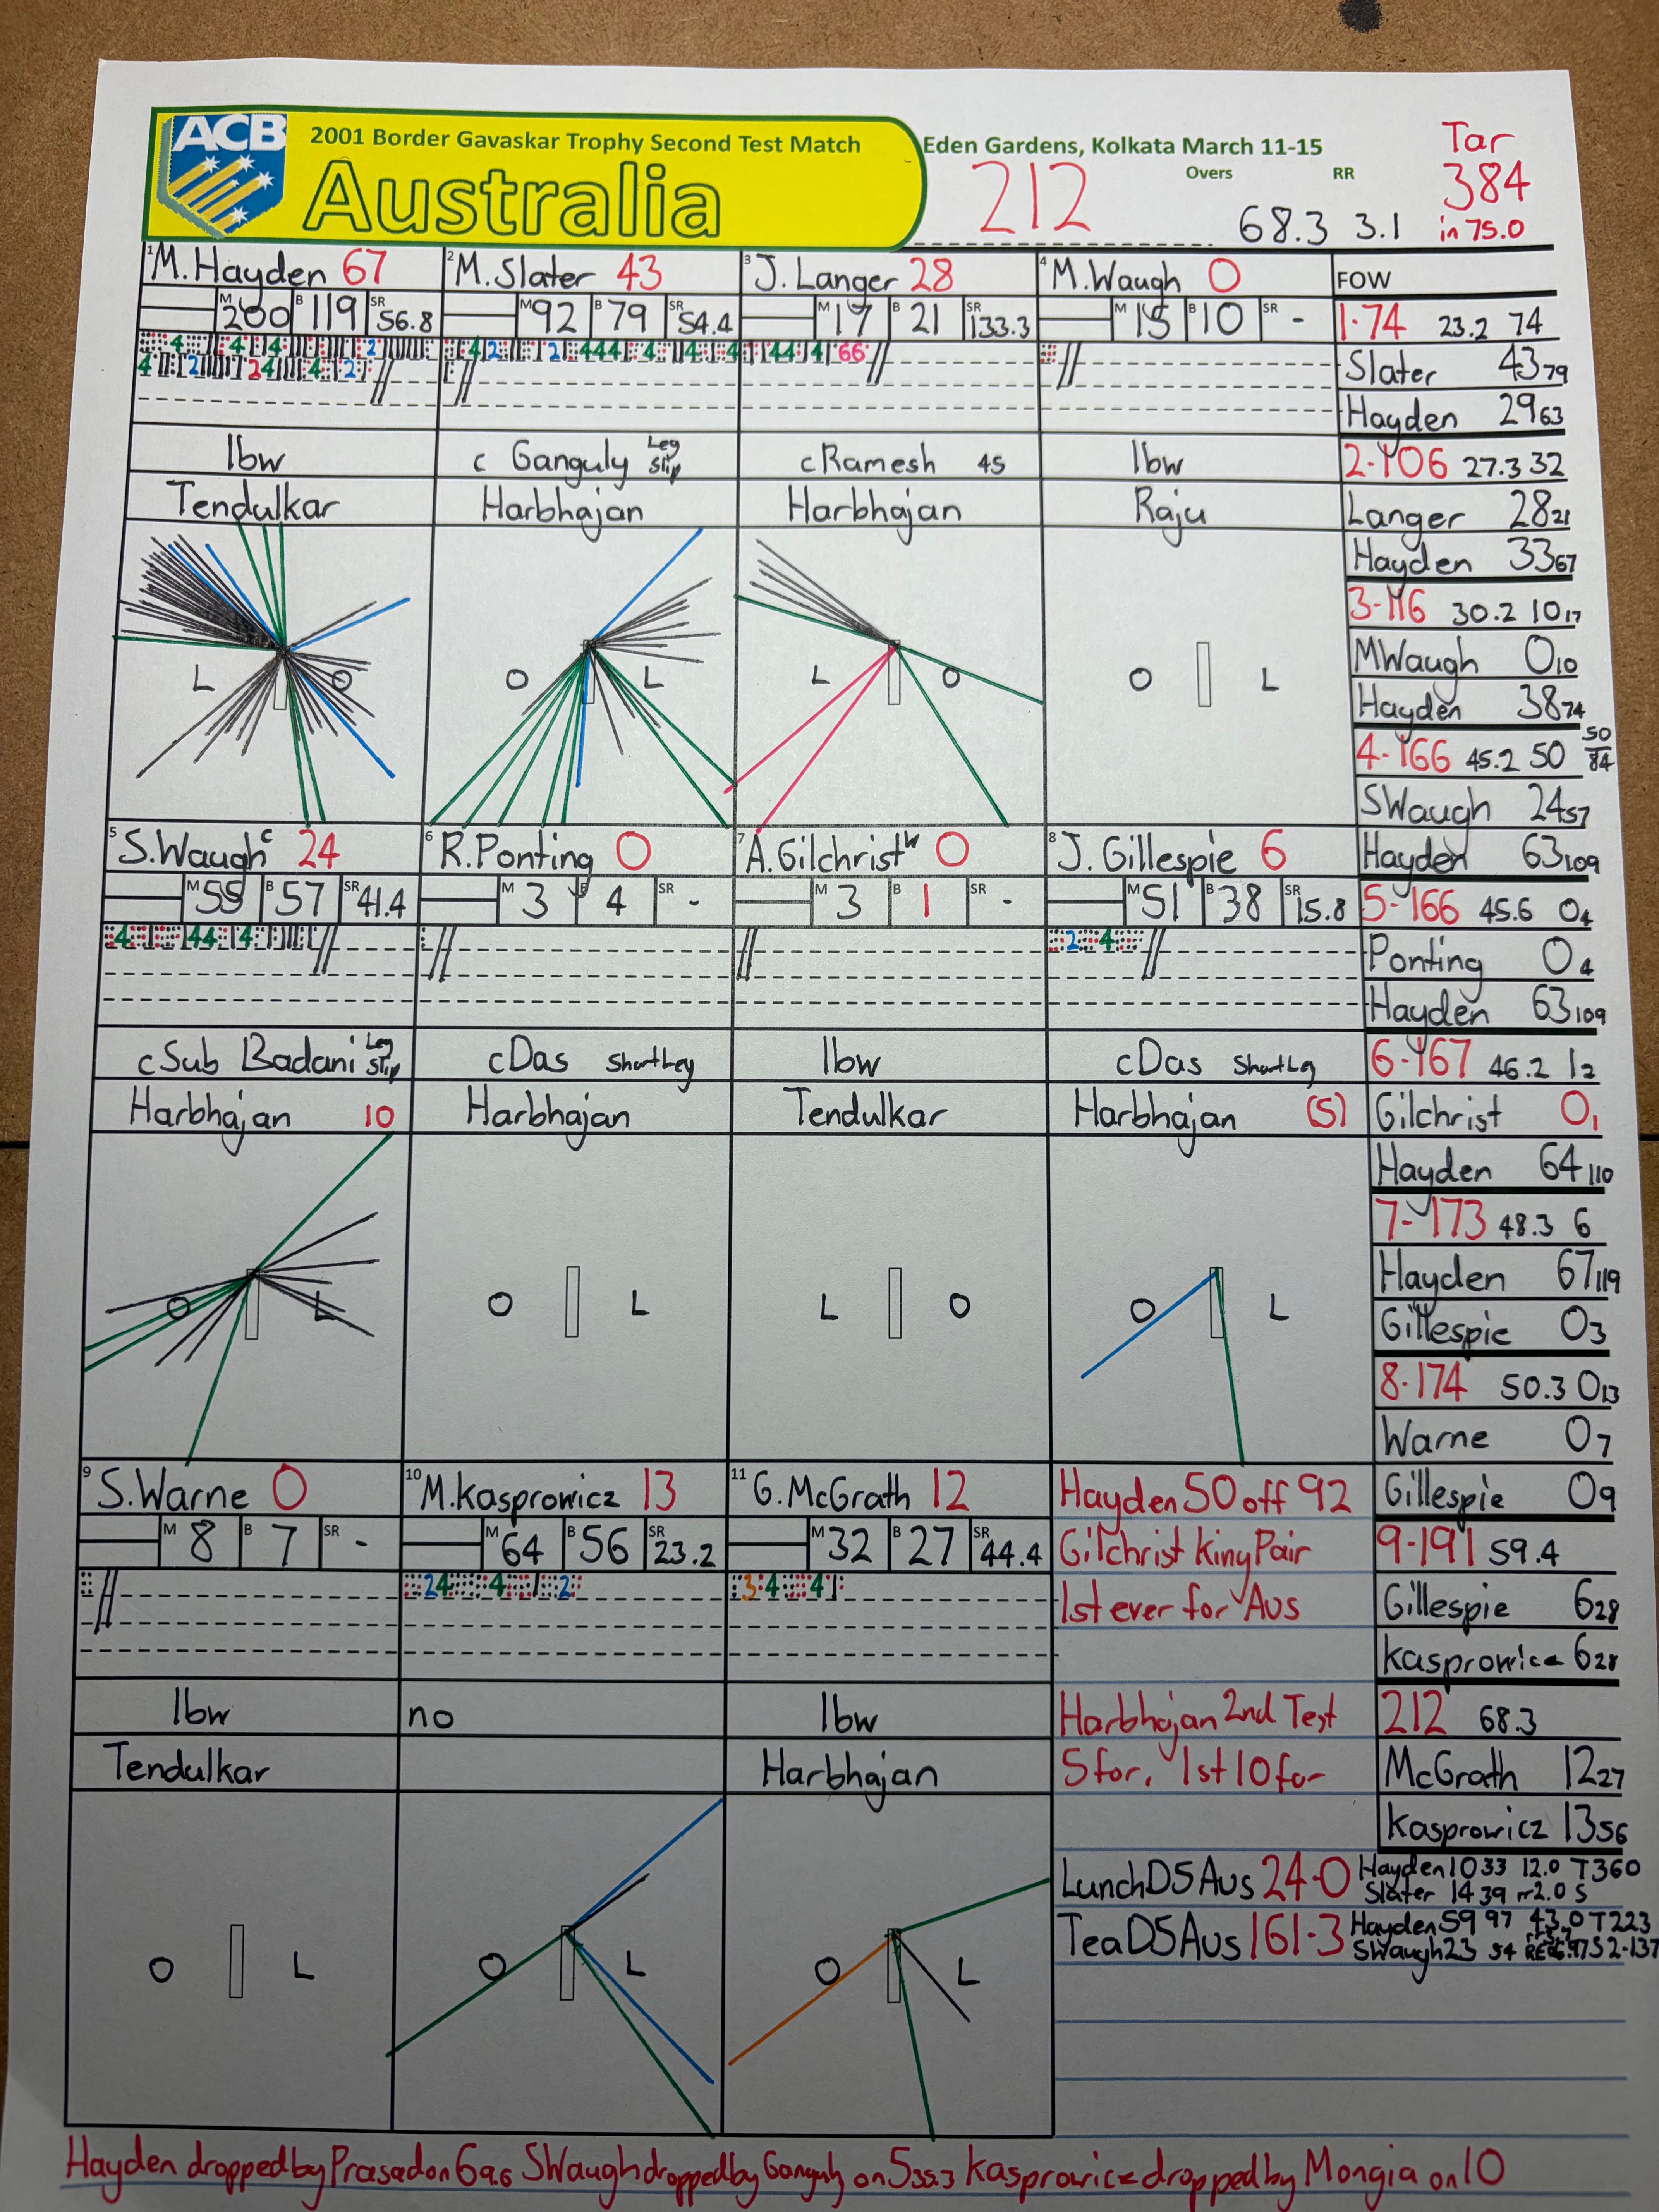 ACB
2001 Border Gavaskar Trophy Second Test Match
Australia
Eden Gardens, Kolkata March 11-15
212
Overs RR
68.3 3.1
Tar
384
in 75.0
1 M.Hayden 67
M 200 B 119 SR 56.8
lbw
Tendulkar
L O
2 M.Slater 43
M 92 B 79 SR 54.4
c Ganguly Leg Slip
Harbhajan
O L
3 J.Langer 28
M 17 B 21 SR 133.3
c Ramesh 45
Harbhajan
L O
4 M.Waugh 0
M 15 B 10 SR -
lbw
Raju
O L
5 S.Waugh c 24
M 59 B 57 SR 41.4
c Sub Badani Leg Slip
Harbhajan 10
O L
6 R.Ponting 0
M 3 B 4 SR -
c Das Short Leg
Harbhajan
O L
7 A.Gilchrist W 0
M 3 B 1 SR -
lbw
Tendulkar
L O
8 J.Gillespie 6
M 51 B 38 SR 15.8
c Das Short Leg
Harbhajan (5)
O L
9 S.Warne 0
M 8 B 7 SR -
lbw
Tendulkar
O L
10 M.Kasprowicz 13
M 64 B 56 SR 23.2
no
O L
11 G.McGrath 12
M 32 B 27 SR 44.4
lbw
Harbhajan
O L
Hayden 50 off 92
Gilchrist King Pair
1st ever for Aus
Harbhajan 2nd Test
5 for, 1st 10 for
FOW
1-74 23.2 74
Slater 43 79
Hayden 29 63
2-106 27.3 32
Langer 28 21
Hayden 33 67
3-116 30.2 10 17
M Waugh 0 10
Hayden 38 74
4-166 45.2 50 50/84
S Waugh 24 57
Hayden 63 109
5-166 45.6 0 4
Ponting 0 4
Hayden 63 109
6-167 46.2 1 2
Gilchrist 0 1
Hayden 64 110
7-173 48.3 6
Hayden 67 119
Gillespie 0 3
8-174 50.3 0 13
Warne 0 7
Gillespie 0 9
9-191 59.4
Gillespie 6 28
Kasprowicz 6 28
212 68.3
McGrath 12 27
Kasprowicz 13 56
Lunch D5 Aus 24-0 Hayden 10 33 12.0 T360
Slater 14 39 rr 2.0 S
Tea D5 Aus 161-3 Hayden 59 97 43.0 T223
S Waugh 23 54
Hayden dropped by Prasad on 6 9.6 S Waugh dropped by Ganguly on 5 35.3 Kasprowicz dropped by Mongia on 10